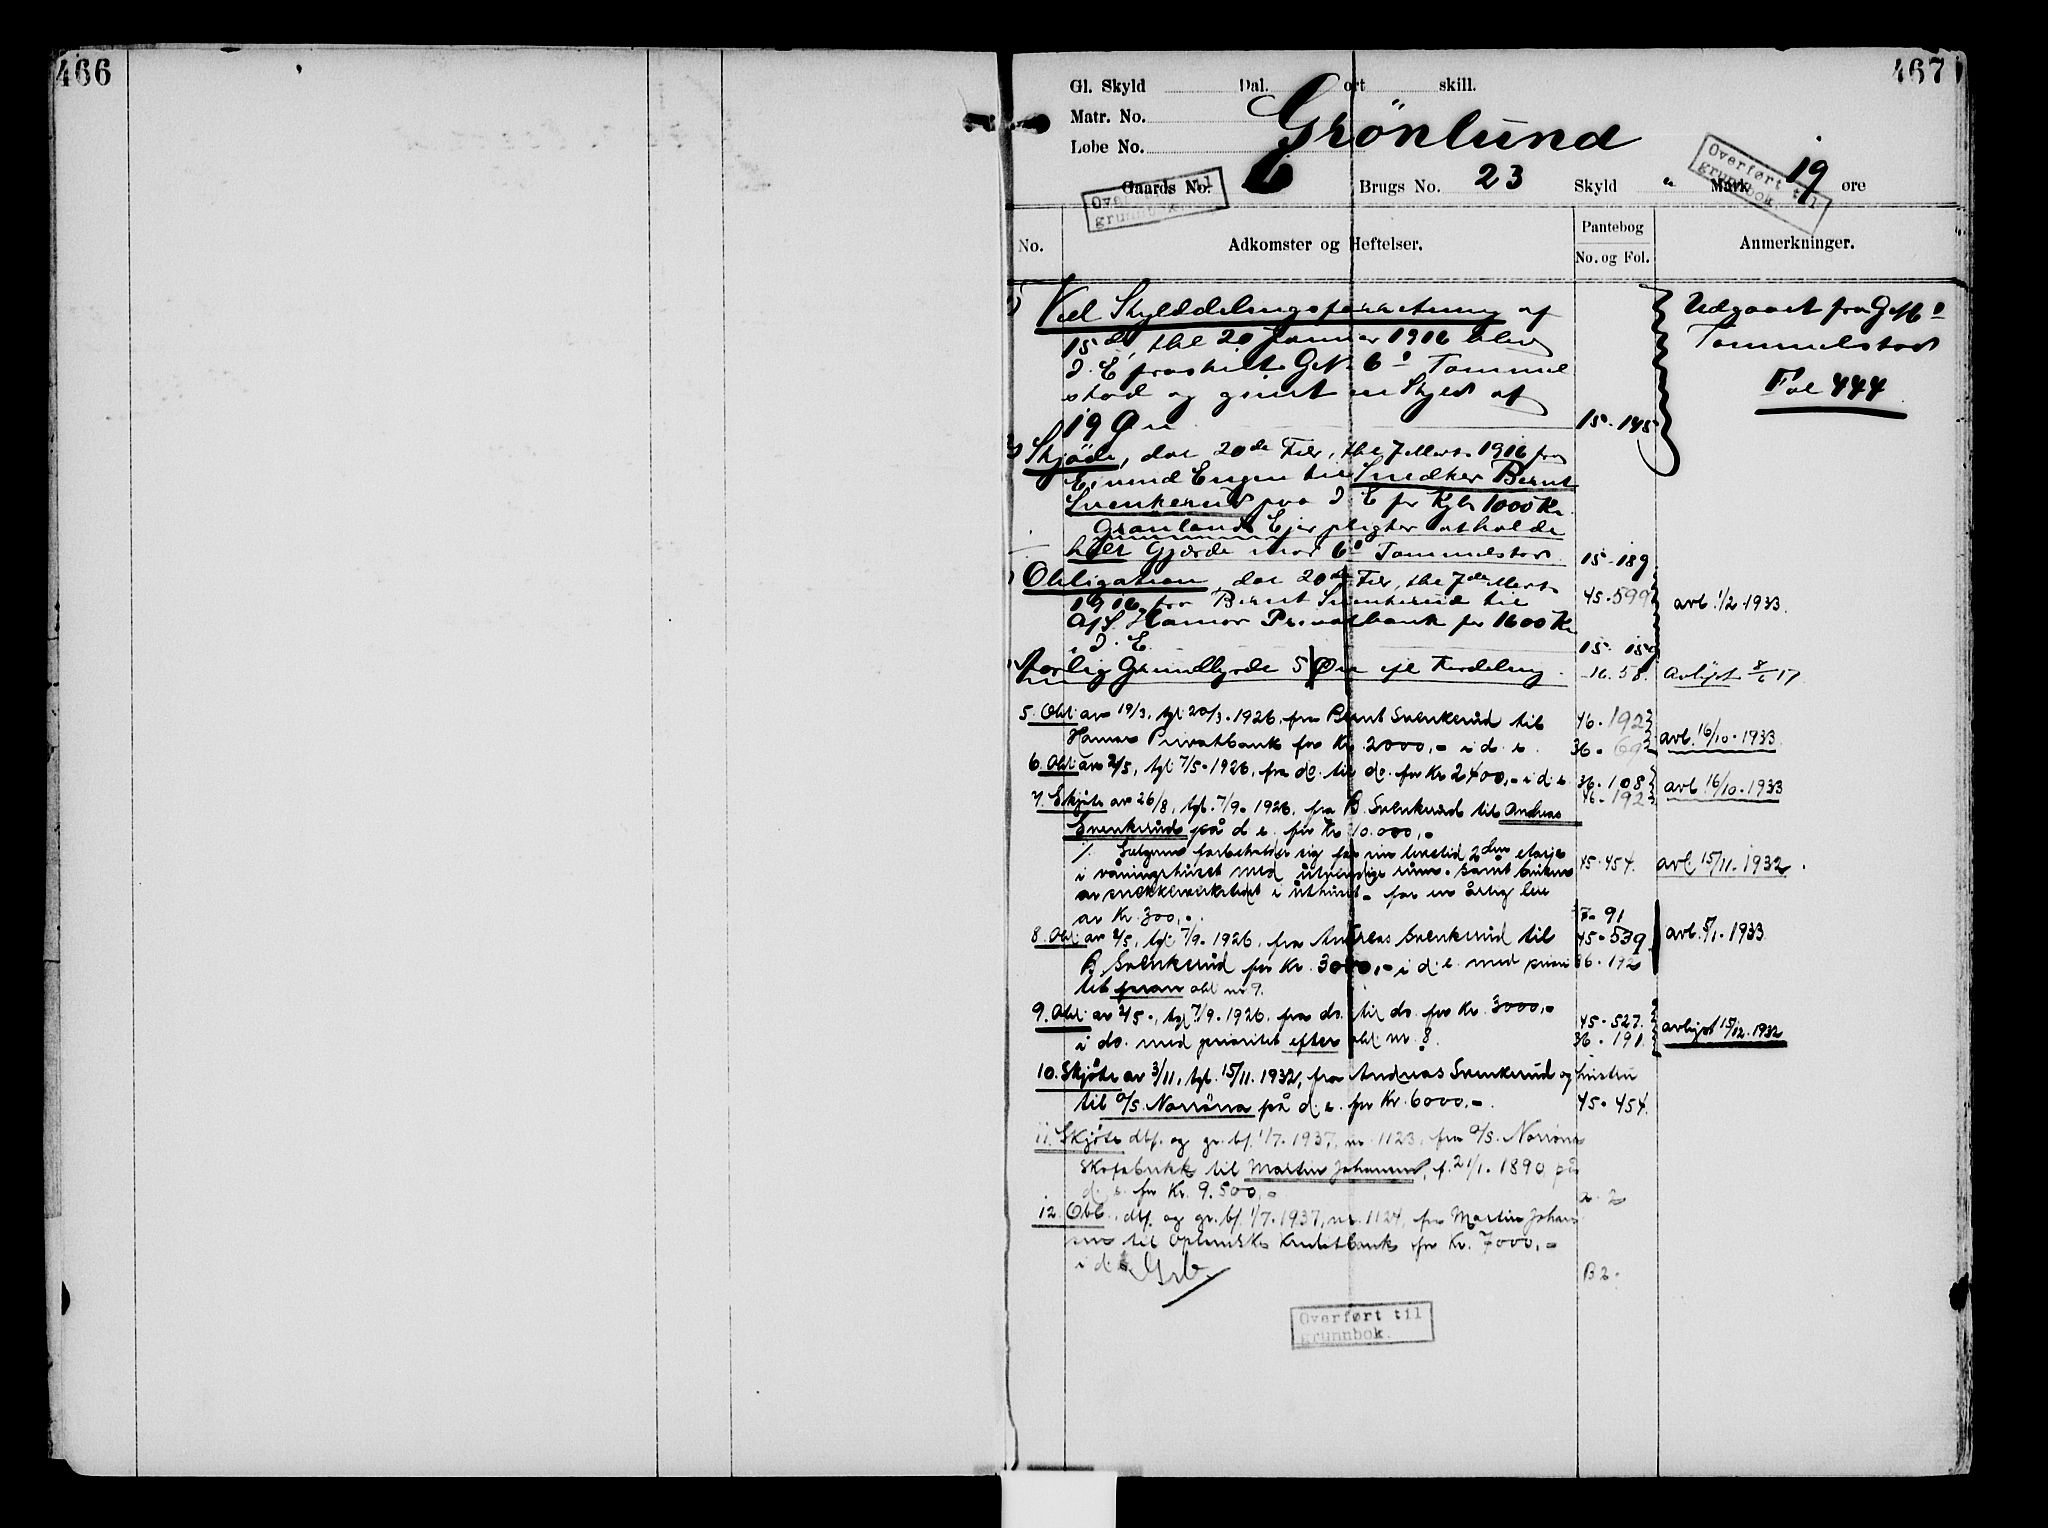 466
467
Gl. Skyld Dal. ort skill.
Matr. No.
Løbe No.
Grönlund
Gaards No. 6 Brugs No. 23 Skyld " Mark 19 øre
Overført til
grunnbok.
Overført til
grunnbok.
No. Adkomster og Heftelser. Pantebog No. og Fol. Anmerkninger.
Ved Skylddelingsforretning af
15de, thl 20 Januar 1916 blev
d. E fraskilt G.N. 6 Tommel
stad og givet en Skyld af
19 Øre 15-145
Udgaaet fra
Tommelstad
Fol 444
Skjöde, dat 20de Febr, thl 7 Marts 1916 fra
Engen til Snedker Bernt
Svenkerud paa d. E for Kjbs 1000 Kr.
Grönlunds Ejer pligter at holde
helt Gjærde mod 6 Tommelstad. 15-189
Obligation, dat 20de Febr, thl 7de Marts
1916 fra Bernt Svenkerud til 45-599 avl. 1/2-1933.
A/S. Hamar Privatbank for 1600 Kr
i d. E. 15-159
Aarlig Grundbyrde 5 Øre efl Fordeling. 16.58. Avlyst 8/6 17
5. Obl. av 19/3, tgl. 20/3-1926, fra Bernt Svenkerud til 46-192
Hamar Privatbank for Kr. 2000,- i d. e. 36-69 avl. 16/10-1933
6. Obl. av 2/5, tgl. 7/5-1926, fra do. til do. for Kr 2400,- i d. e. 36-108 avl. 16/10-1933
7. Skjöte av 26/8, tgl. 7/9-1926, fra B. Svenkerud til Andreas 46-192
Svenkerud på d. e. for Kr. 10.000,-
1/. Selgeren forbeholder sig for sin levetid 2den etasje
i våningshuset med utvendige rum. Samt bruken 45-454. avl. 15/11-1932.
av snekkerverkstedet i uthuset - for en årlig leie
av Kr. 300,-. 91
8. Obl. av 2/5, tgl. 7/9-1926, fra Andreas Svenkerud til 45-539 avl. 5/1-1933
B. Svenkerud for Kr. 3000,- i d. e. med priori 36-192
tet foran obl nr 9.
9. Obl. av 2/5-, tgl 7/9-1926, fra do. til do. for Kr. 3000,- 45-527. avlyst 15/12-1932
i do. med prioritet efter obl nr. 8. 36-191.
10. Skjöte av 3/11, tgl. 15/11-1932, fra Andreas Svenkerud og hustru
til A/S. Norröna på d. e. for Kr. 6000,-. 45-454.
11. Skjöte dtf. og gr. bf. 1/7-1937, nr. 1123, fra A/S. Norröna
Skofabrikk til Martin Johansen, f. 21/1-1890, på
d. e. for Kr. 9.500,-
12. Obl., dtf. og gr. bf. 1/7-1937, nr. 1124, fra Martin Johan
sen til Oplandske Kreditbank for Kr. 7000,-
i d. e. B 2.
Overført til
grunnbok.